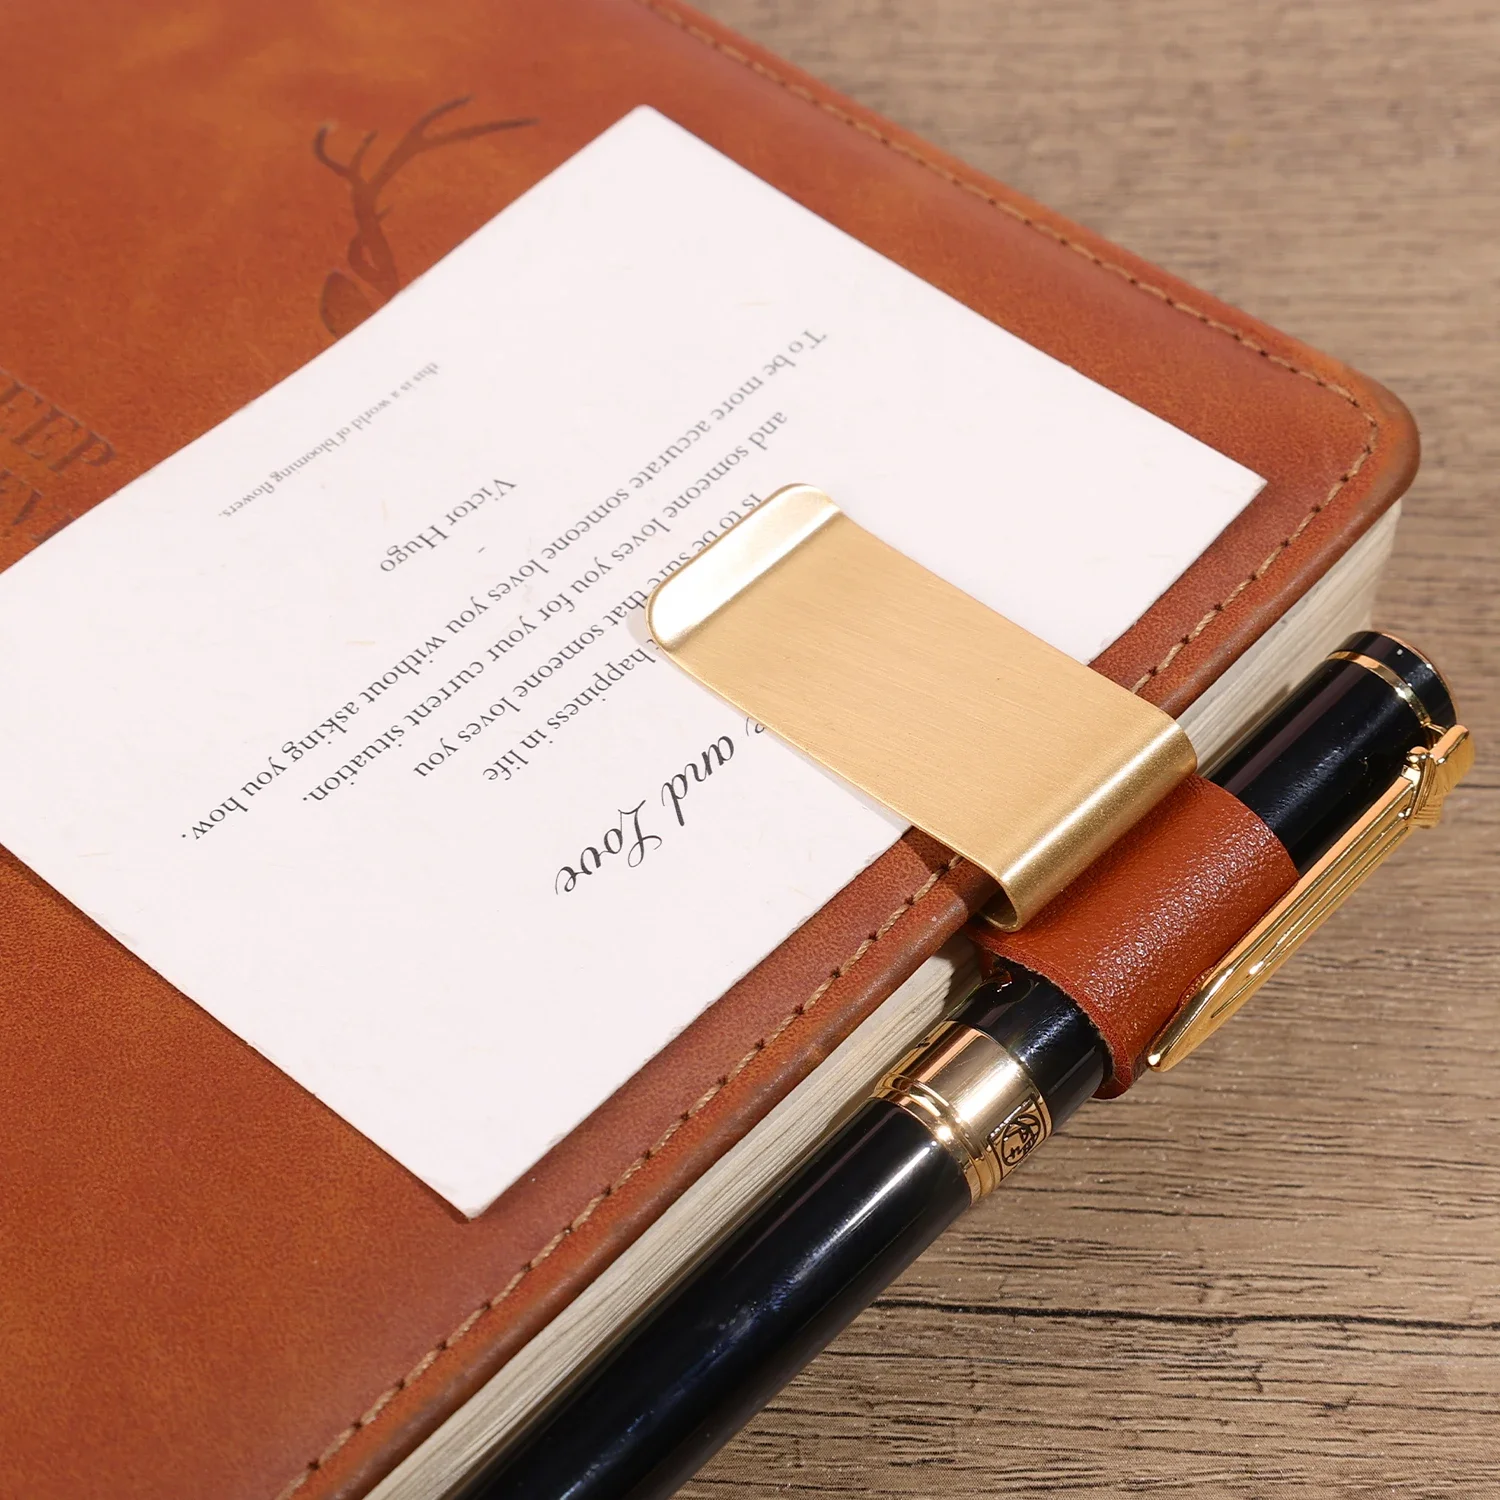 and Love
happiness in life
is to be sure that someone loves you
and someone loves you for your current situation.
To be more accurate someone loves you without asking you how.
Victor Hugo
this is a world of blooming flowers.
EEP